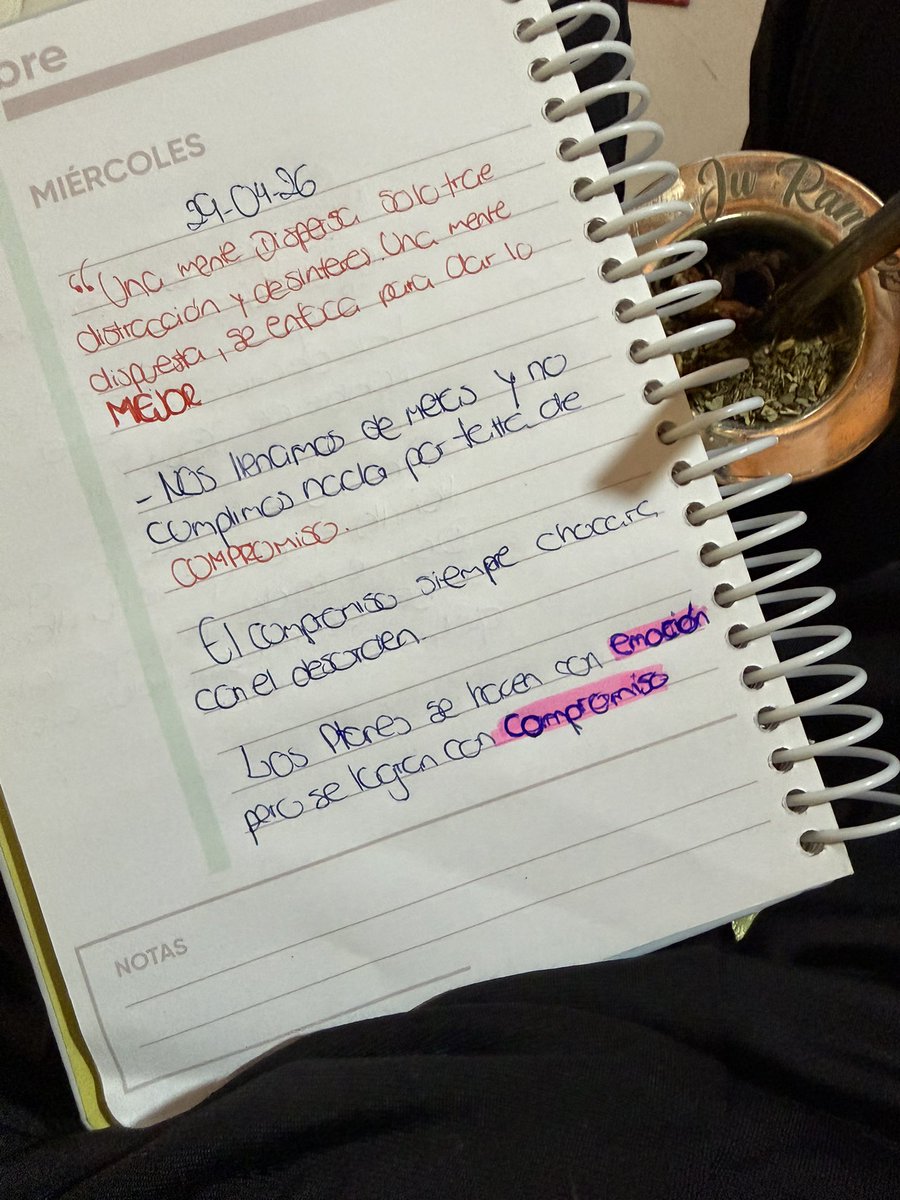 bre
MIÉRCOLES
29-04-26
“Una mente Dispersa solo trae
distracción y desinteres. Una mente
dispuesta, se enfoca para dar lo
MEJOR
- Nos llenamos de metas y no
cumplimos nada por falta de
COMPROMISO.
El compromiso siempre chocará
con el desorden.
Los Planes se hacen con emoción
pero se logran con compromiso
NOTAS
Ju Ram